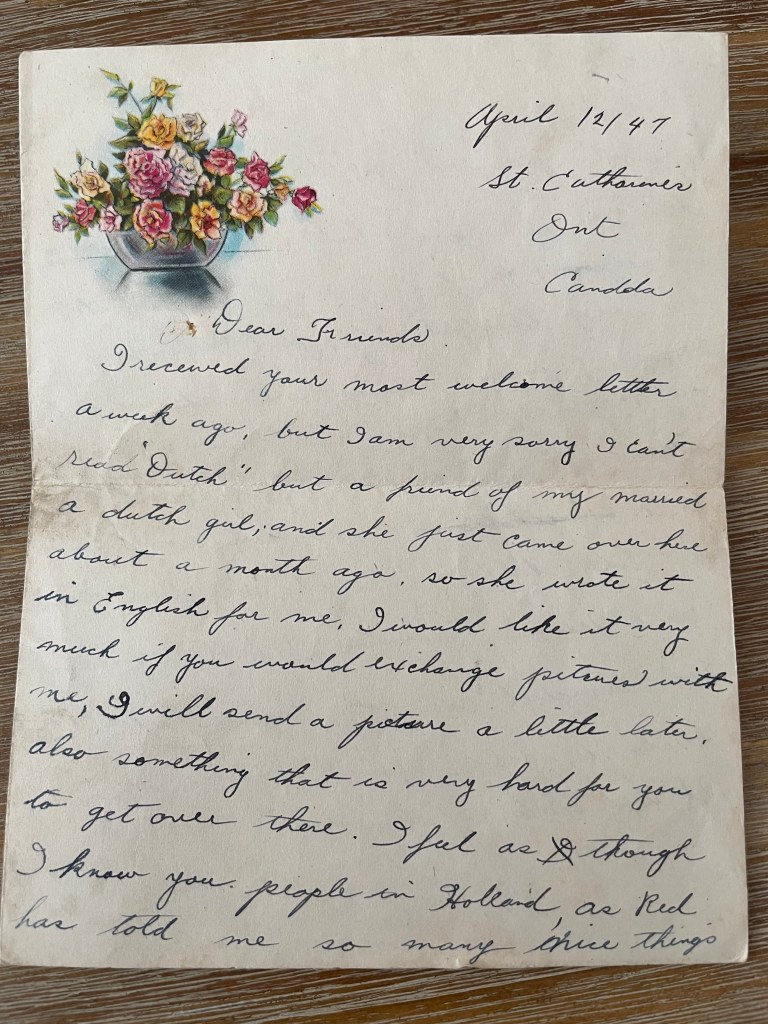 April 12/47
St. Catharines
Ont
Canada
Dear Friends.
I received your most welcome letter
a week ago, but I am very sorry I can't
read "Dutch" but a friend of my married
a dutch girl, and she just came over here
about a month ago, so she wrote it
in English for me. I would like it very
much if you would exchange pitures with
me, I will send a picture a little later.
also something that is very hard for you
to get over there. I feel as though
I know you people in Holland, as Red
has told me so many nice things